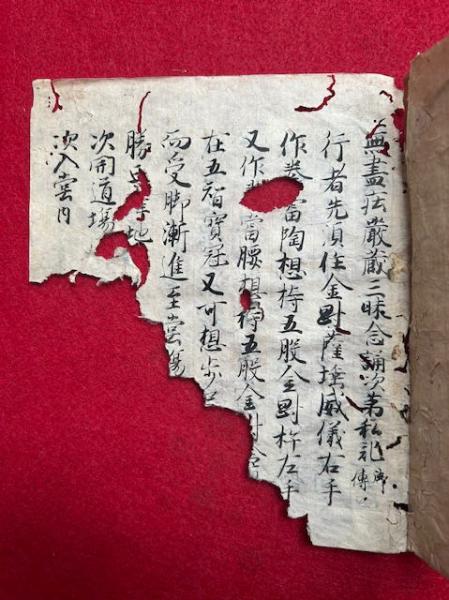 無盡荘嚴蔵三昧念誦次第私記御傳
行者先須住金剛薩埵威儀右手
作拳當胸想持五股金剛杵左手
又作當腰想持五股金剛
在五智寶冠又可想歩
而受脚漸進至堂場
勝地
次開道場
次入堂内